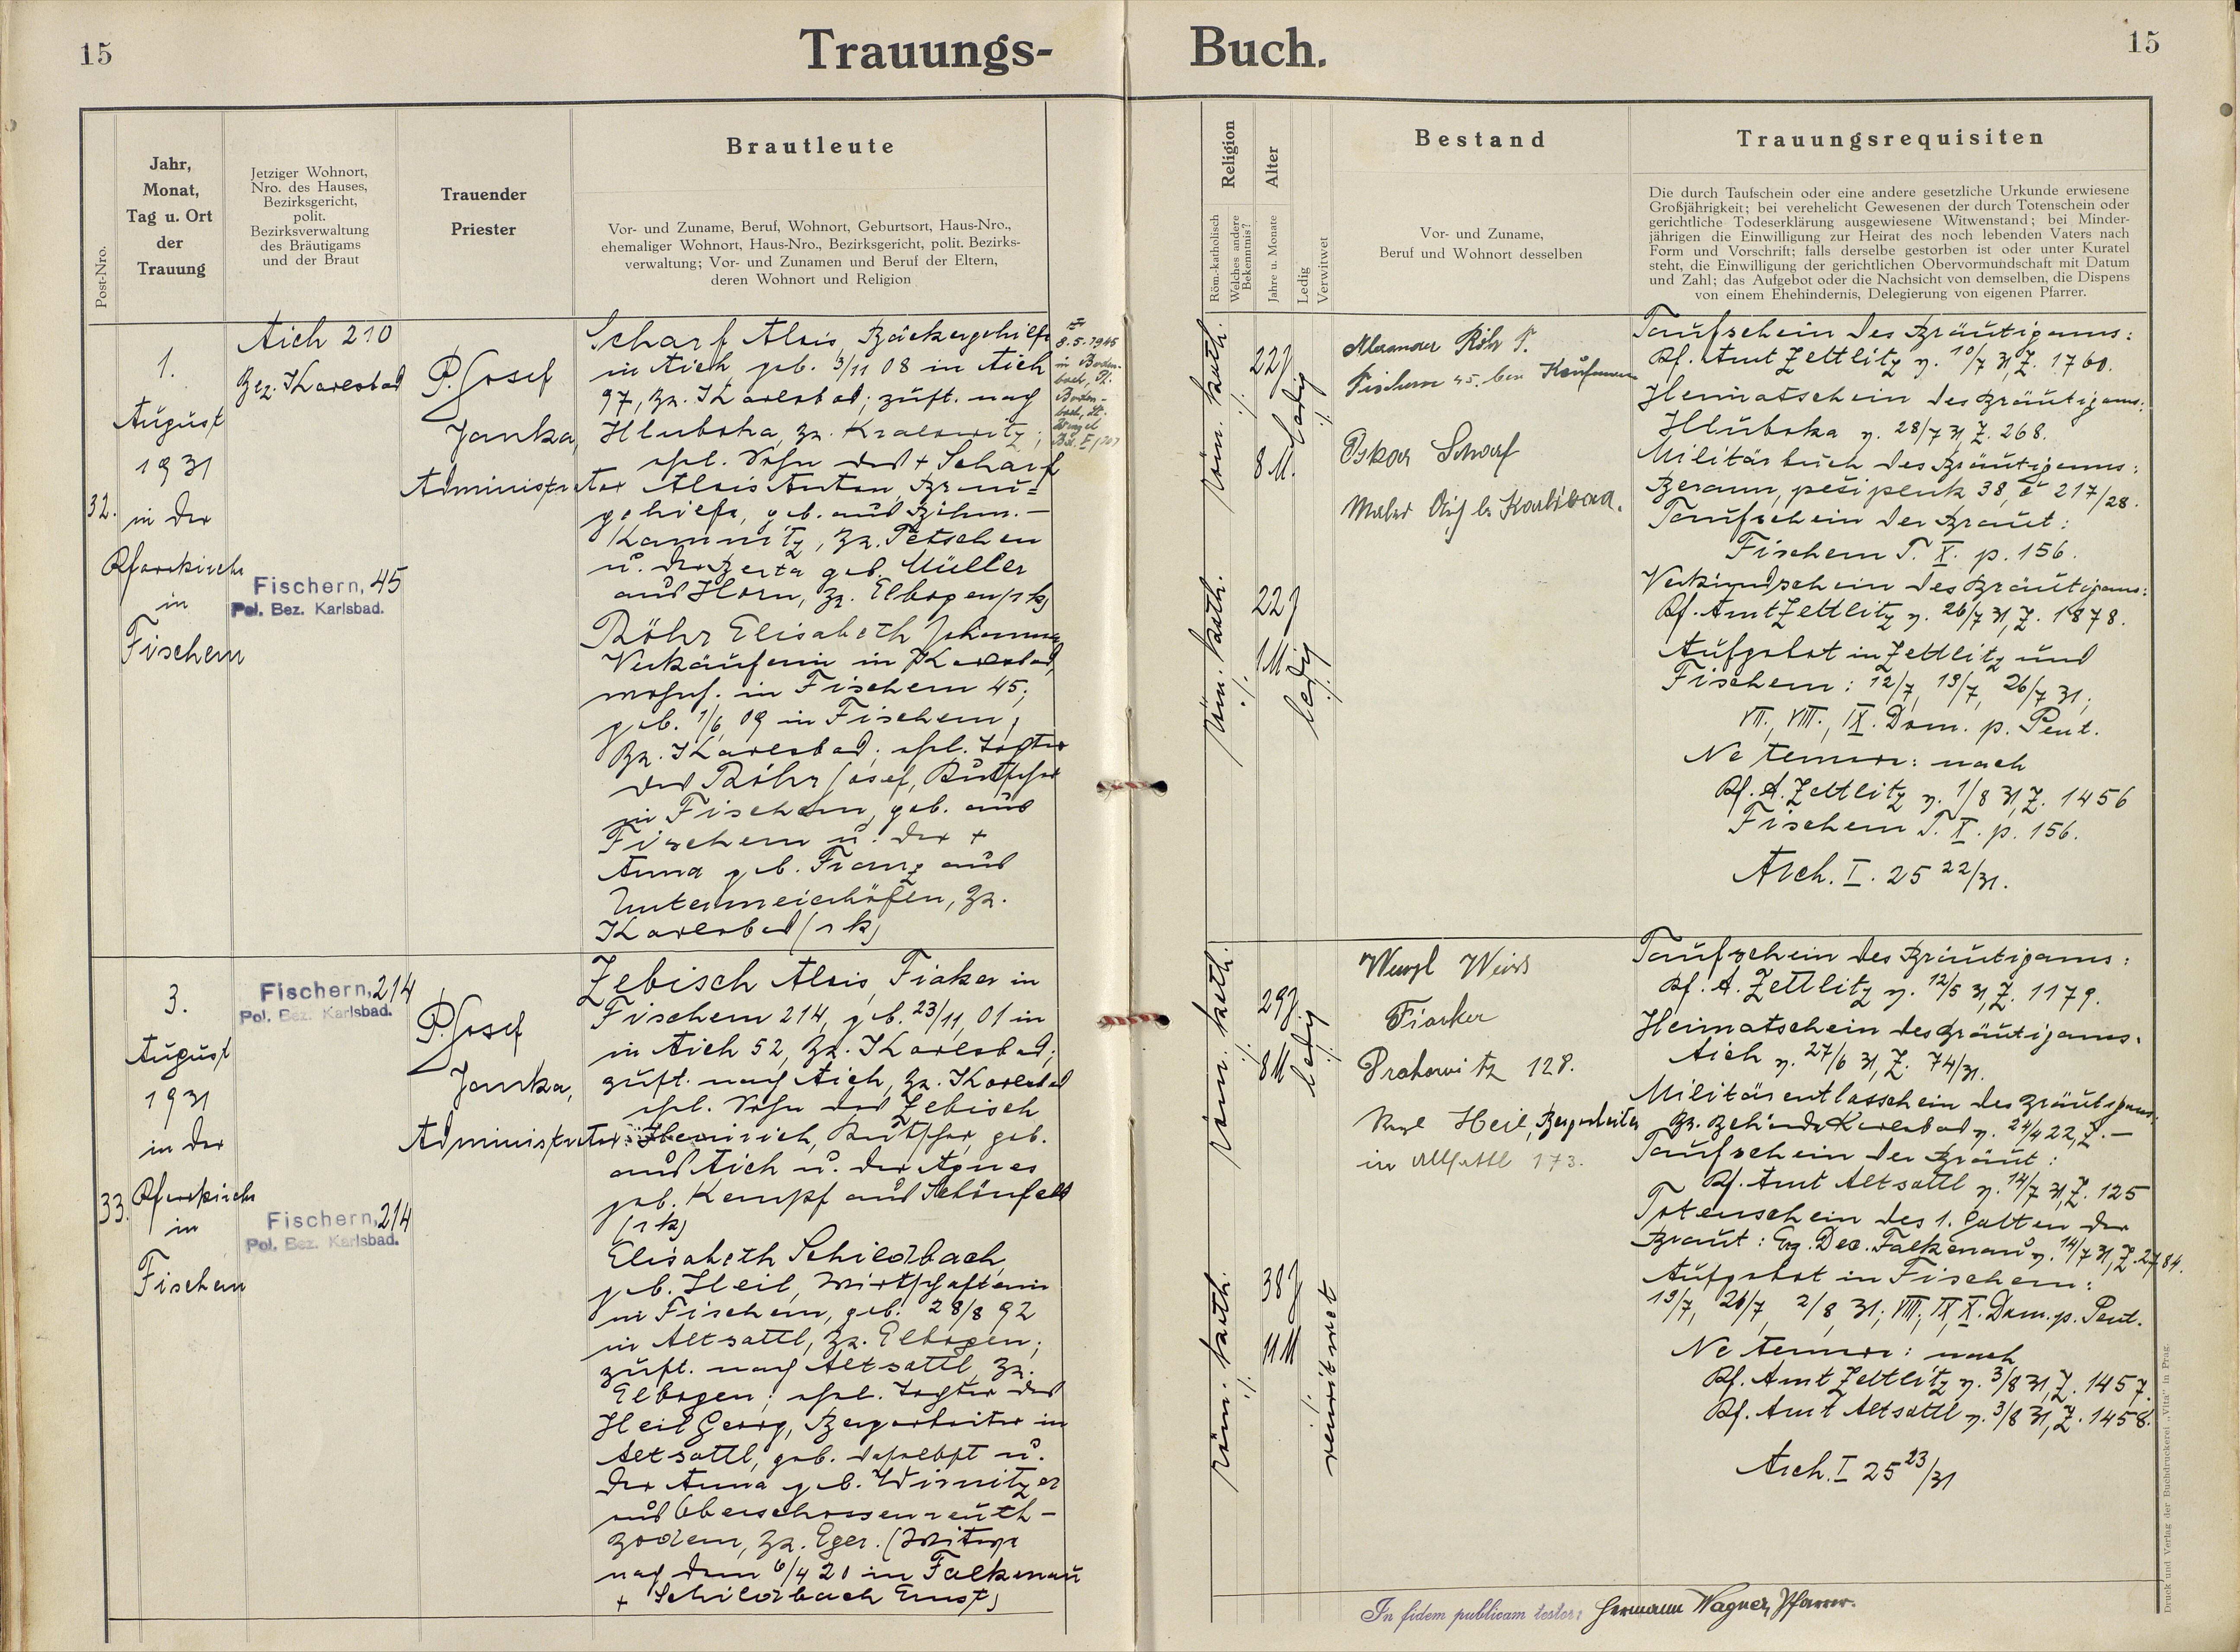 15
Trauungs-
Buch.
15
Post-Nro.
Jahr,
Monat,
Tag u. Ort
der
Trauung
Jetziger Wohnort,
Nro. des Hauses,
Bezirksgericht,
polit.
Bezirksverwaltung
des Bräutigams
und der Braut
Trauender
Priester
Brautleute
Vor- und Zuname, Beruf, Wohnort, Geburtsort, Haus-Nro.,
ehemaliger Wohnort, Haus-Nro., Bezirksgericht, polit. Bezirks-
verwaltung; Vor- und Zunamen und Beruf der Eltern,
deren Wohnort und Religion
Religion
Röm.-katholisch
Welches andere
Bekenntnis?
Alter
Jahre u. Monate
Ledig
Verwitwet
Bestand
Vor- und Zuname,
Beruf und Wohnort desselben
Trauungsrequisiten
Die durch Taufschein oder eine andere gesetzliche Urkunde erwiesene
Großjährigkeit; bei verehelicht Gewesenen der durch Totenschein oder
gerichtliche Todeserklärung ausgewiesene Witwenstand; bei Minder-
jährigen die Einwilligung zur Heirat des noch lebenden Vaters nach
Form und Vorschrift; falls derselbe gestorben ist oder unter Kuratel
steht, die Einwilligung der gerichtlichen Obervormundschaft mit Datum
und Zahl; das Aufgebot oder die Nachsicht von demselben, die Dispens
von einem Ehehindernis, Delegierung von eigenen Pfarrer.
32.
1.
August
1931
in der
Pfarrkirche
in
Fischern
Aich 210
Bez. Karlsbad
Fischern, 45
Pol. Bez. Karlsbad.
P. Josef
Janka,
Administrator
Scharf Alois, Bäckergehilfe
in Aich geb. 3/11 08 in Aich
97, Bz. Karlsbad; zust. nach
Hluboka, Bz. Kralowitz;
ehel. Sohn des + Scharf
Alois Anton, Brau-
gehilfe, geb. aus Böhm.-
Kamnitz, Bz. Tetschen
u. der Berta geb. Müller
aus Horn, Bz. Elbogen (rk)
8.5.1945
Röhr Elisabeth Johanna,
Verkäuferin in Karlsbad,
wohnh. in Fischern 45;
geb. 1/6 09 in Fischern,
Bz. Karlsbad; ehel. Tochter
des Röhr Josef, Kutscher
in Fischern, geb. aus
Fischern u. der +
Anna geb. Franz aus
Untermeierhöfen, Bz.
Karlsbad (rk)
röm. kath.
./.
22 J
8 M.
ledig
./.
röm. kath.
./.
22 J
1 M
ledig
./.
Alexander Röhr
Fischern 45. Kaufmann
Oskar Scharf
Maler
Taufschein des Bräutigams:
Pf. Amt Zettlitz v. 10/7 31, Z. 1760.
Heimatschein des Bräutigams:
Hluboka v. 28/7 31, Z. 268.
Militärbuch des Bräutigams:
Beraun, pěší pluk 38, č 217/28.
Taufschein der Braut:
Fischern T. X. p. 156.
Verkündschein des Bräutigams:
Pf. Amt Zettlitz v. 26/7 31, Z. 1878.
Aufgebot in Zettlitz und
Fischern: 12/7, 19/7, 26/7 31;
VII., VIII., IX. Dom. p. Pent.
Ne temere: nach
Pf. A. Zettlitz v. 1/8 31, Z. 1456
Fischern T. X. p. 156.
Arch. I. 25 22/31.
33.
3.
August
1931
in der
Pfarrkirche
in
Fischern
Fischern, 214
Pol. Bez. Karlsbad.
Fischern, 214
Pol. Bez. Karlsbad.
P. Josef
Janka,
Administrator
Zebisch Alois, Fiaker in
Fischern 214, geb. 23/11, 01 in
in Aich 52, Bz. Karlsbad;
zust. nach Aich, Bz. Karlsbad
ehel. Sohn des Zebisch
Heinrich, Kutscher, geb.
aus Aich u. der Agnes
geb. Kempf aus Schönfeld
(rk)
Elisabeth Schildbach,
geb. Heil, Wirtschafterin
in Fischern, geb. 28/8 92
in Altsattl, Bz. Elbogen;
zust. nach Altsattl, Bz.
Elbogen; ehel. Tochter des
Heil Georg, Bergarbeiter in
Altsattl, geb. daselbst u.
der Anna geb. Wirnitzer
aus Oberschossenreuth-
Bz. Eger. (Witwe
nach dem 6/4 20 in Falkenau
+ Schildbach Ernst)
röm. kath.
./.
29 J.
8 M
ledig
./.
röm. kath.
./.
38 J
11 M
./.
verwitwet
Wenzl Weiss
Fiaker
Drahowitz 128.
Heil, Bergarbeiter
in Altsattl 173.
Taufschein des Bräutigams:
Pf. A. Zettlitz v. 12/5 31, Z. 1179.
Heimatschein des Bräutigams:
Aich v. 27/6 31, Z. 74/31.
Militärentlasschein des Bräutigams:
Bz. Behörde Karlsbad v. 24/4 22, Z. -
Taufschein der Braut:
Pf. Amt Altsattl v. 14/7 31, Z. 125
Totenschein des 1. Gatten der
Braut: Erz. Dec. Falkenau v. 14/7 31, Z. 2784.
Aufgebot in Fischern:
19/7, 26/7, 2/8 31; VIII., IX, X. Dom. p. Pent.
Ne temere: nach
Pf. Amt Zettlitz v. 3/8 31, Z. 1457.
Pf. Amt Altsattl v. 3/8 31, Z. 1458.
Arch. I 25 23/31
In fidem publicam testor: Hermann Wagner, Pfarrer.
Druck und Verlag der Buchdruckerei „Vita" in Prag.